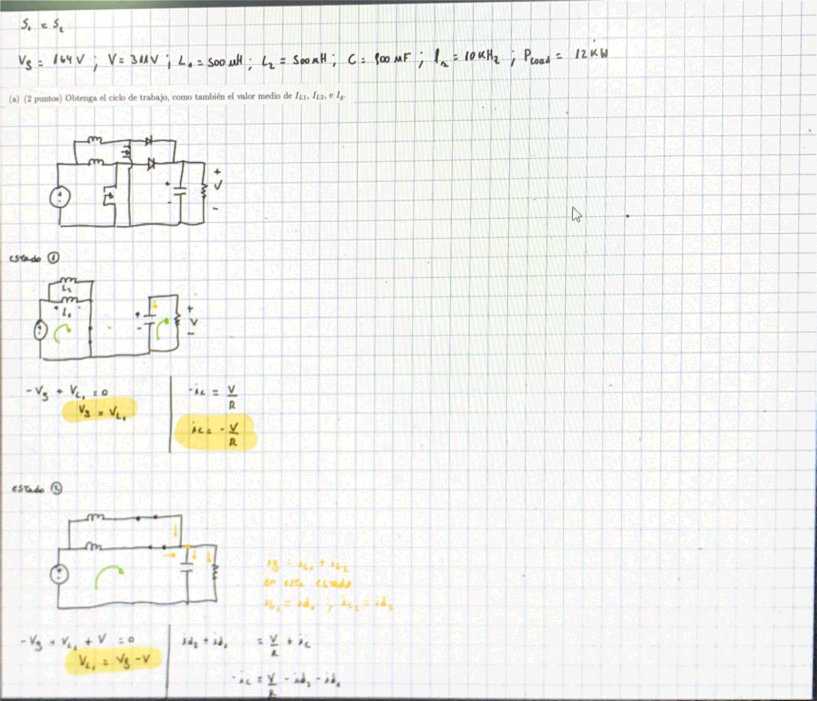 S₁ = S₂
Vg = 164 V ; V = 311 V ; L₁ = 500 μH ; L₂ = 500 μH ; C = 900 μF ; = 10 KHz ; Pload = 12 KW
(a) (2 puntos) Obtenga el ciclo de trabajo, como también el valor medio de I_{L1}, I_{L2}, e I_g.
+
V
-
+
-
estado ①
L₂
+ L₁ -
+
V
-
+
-
-Vg + V_{L₁} = 0
Vg = V_{L₁}
-ic = V/R
ic = -V/R
estado ②
ig = i_{L₁} + i_{L₂}
en este estado
i_{L₁} = id₁ , i_{L₂} = id₂
-Vg + V_{L₁} + V = 0
V_{L₁} = Vg - V
id₂ + id₁ = V/R + ic
-ic = V/R - id₂ - id₁